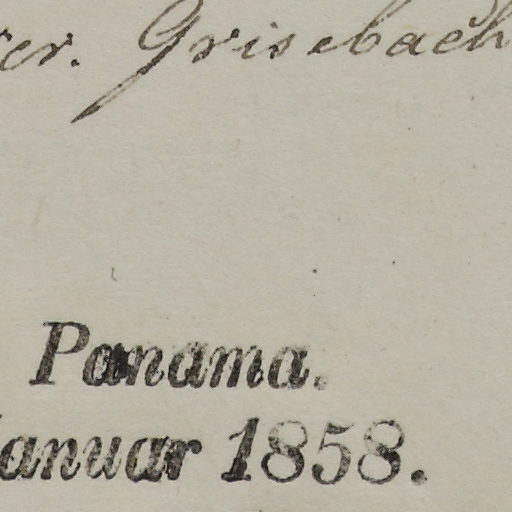 cr. Grisebach
Panama.
Januar 1858.